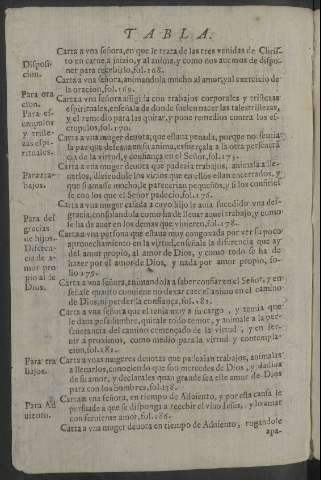 TABLA.
Carta a vna señora, en que le trata de las tres venidas de Christo
Disposi- en carne, a juizio, y al anima, y como nos auemos de dispo-
cion. ner para recebirlo, fol. 168.
Carta a vna señora, animandola mucho al amor, y al exercicio de
Para ora la oracion, fol. 169.
cion. Carta a vna señora afligida con trabajos corporales y tristezas
Para es- espirituales, enseñala de donde suelen nacer las tales tristezas,
crupulos y el remedio para las quitar, y pone remedios contra los es-
y triste- crupulos, fol. 170.
zas espi- Carta a vna muger deuota, que estaua penada, porque no sentia
rituales. la paz que deseaua en su anima, esfuerçala a la perseueran-
cia de la virtud, y confiança en el Señor, fol. 175.
Carta a vna muger deuota que padezia trabajos, animala a lle-
Para tra- uarlos, diziendole los
bajos. que si amasse mucho, le parecerian pequeños, y si los confiriesse
con los que el Señor padecio, fol. 176.
Carta a vna muger casada a cuyo hijo le auia sucedido vna des-
Para des gracia, consolandola como ha de lleuar aquel trabajo, y como
gracias se ha de auer en los demas que vinieren, fol. 178.
de hijos. Carta a vna persona que estaua muy congoxada por ver su poco
Diferen- aprouechamiento en la virtud, enseñale la diferencia que ay
cia de a- del amor propio, al amor de Dios, y como todo se ha de
mor pro hazer por el amor de Dios, y nada por amor propio, fo-
pio al de lio 179.
Dios. Carta a vna señora, animandola a saber confiar en el Señor, y en-
señale quanto conuiene no dexar caer el animo en el camino
de Dios, ni perder la confiança, fol. 181.
Carta a vna señora que el tenia muy a su cargo, y temia que
le daua pesadumbre, quitale todo temor, y animale a la per-
seuerancia del camino començado de la virtud, y en ser-
uir a proximos, como medio para la virtud y contempla-
cion, fol. 182.
Para tra Carta a vnas mugeres deuotas que padezian trabajos, animalas
bajos. a lleuarlos, conociendo que son mercedes de Dios, y dadiua
de su amor, y declarales quan grande sea este amor de Dios
para con los hombres, fol. 158.
Carta a vna señora, en tiempo de Aduiento, y por esta causa le
Para Ad persuade a que se disponga a recebir el vino Iesus, y lo amar
uiento. con feruiente amor, fol. 186.
Carta a vna muger deuota en tiempo de Aduiento, rugandole
apa-